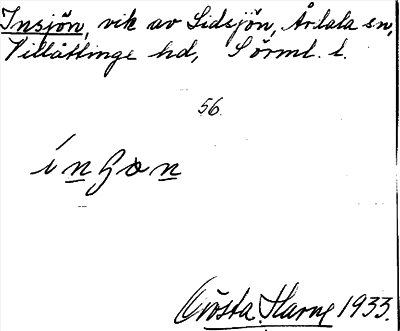 Insjön, vik av Lidsjön, Årdala sn,
Villåttinge hd, Sörml. l.
56.
ínʒon
Gösta Harne 1933.